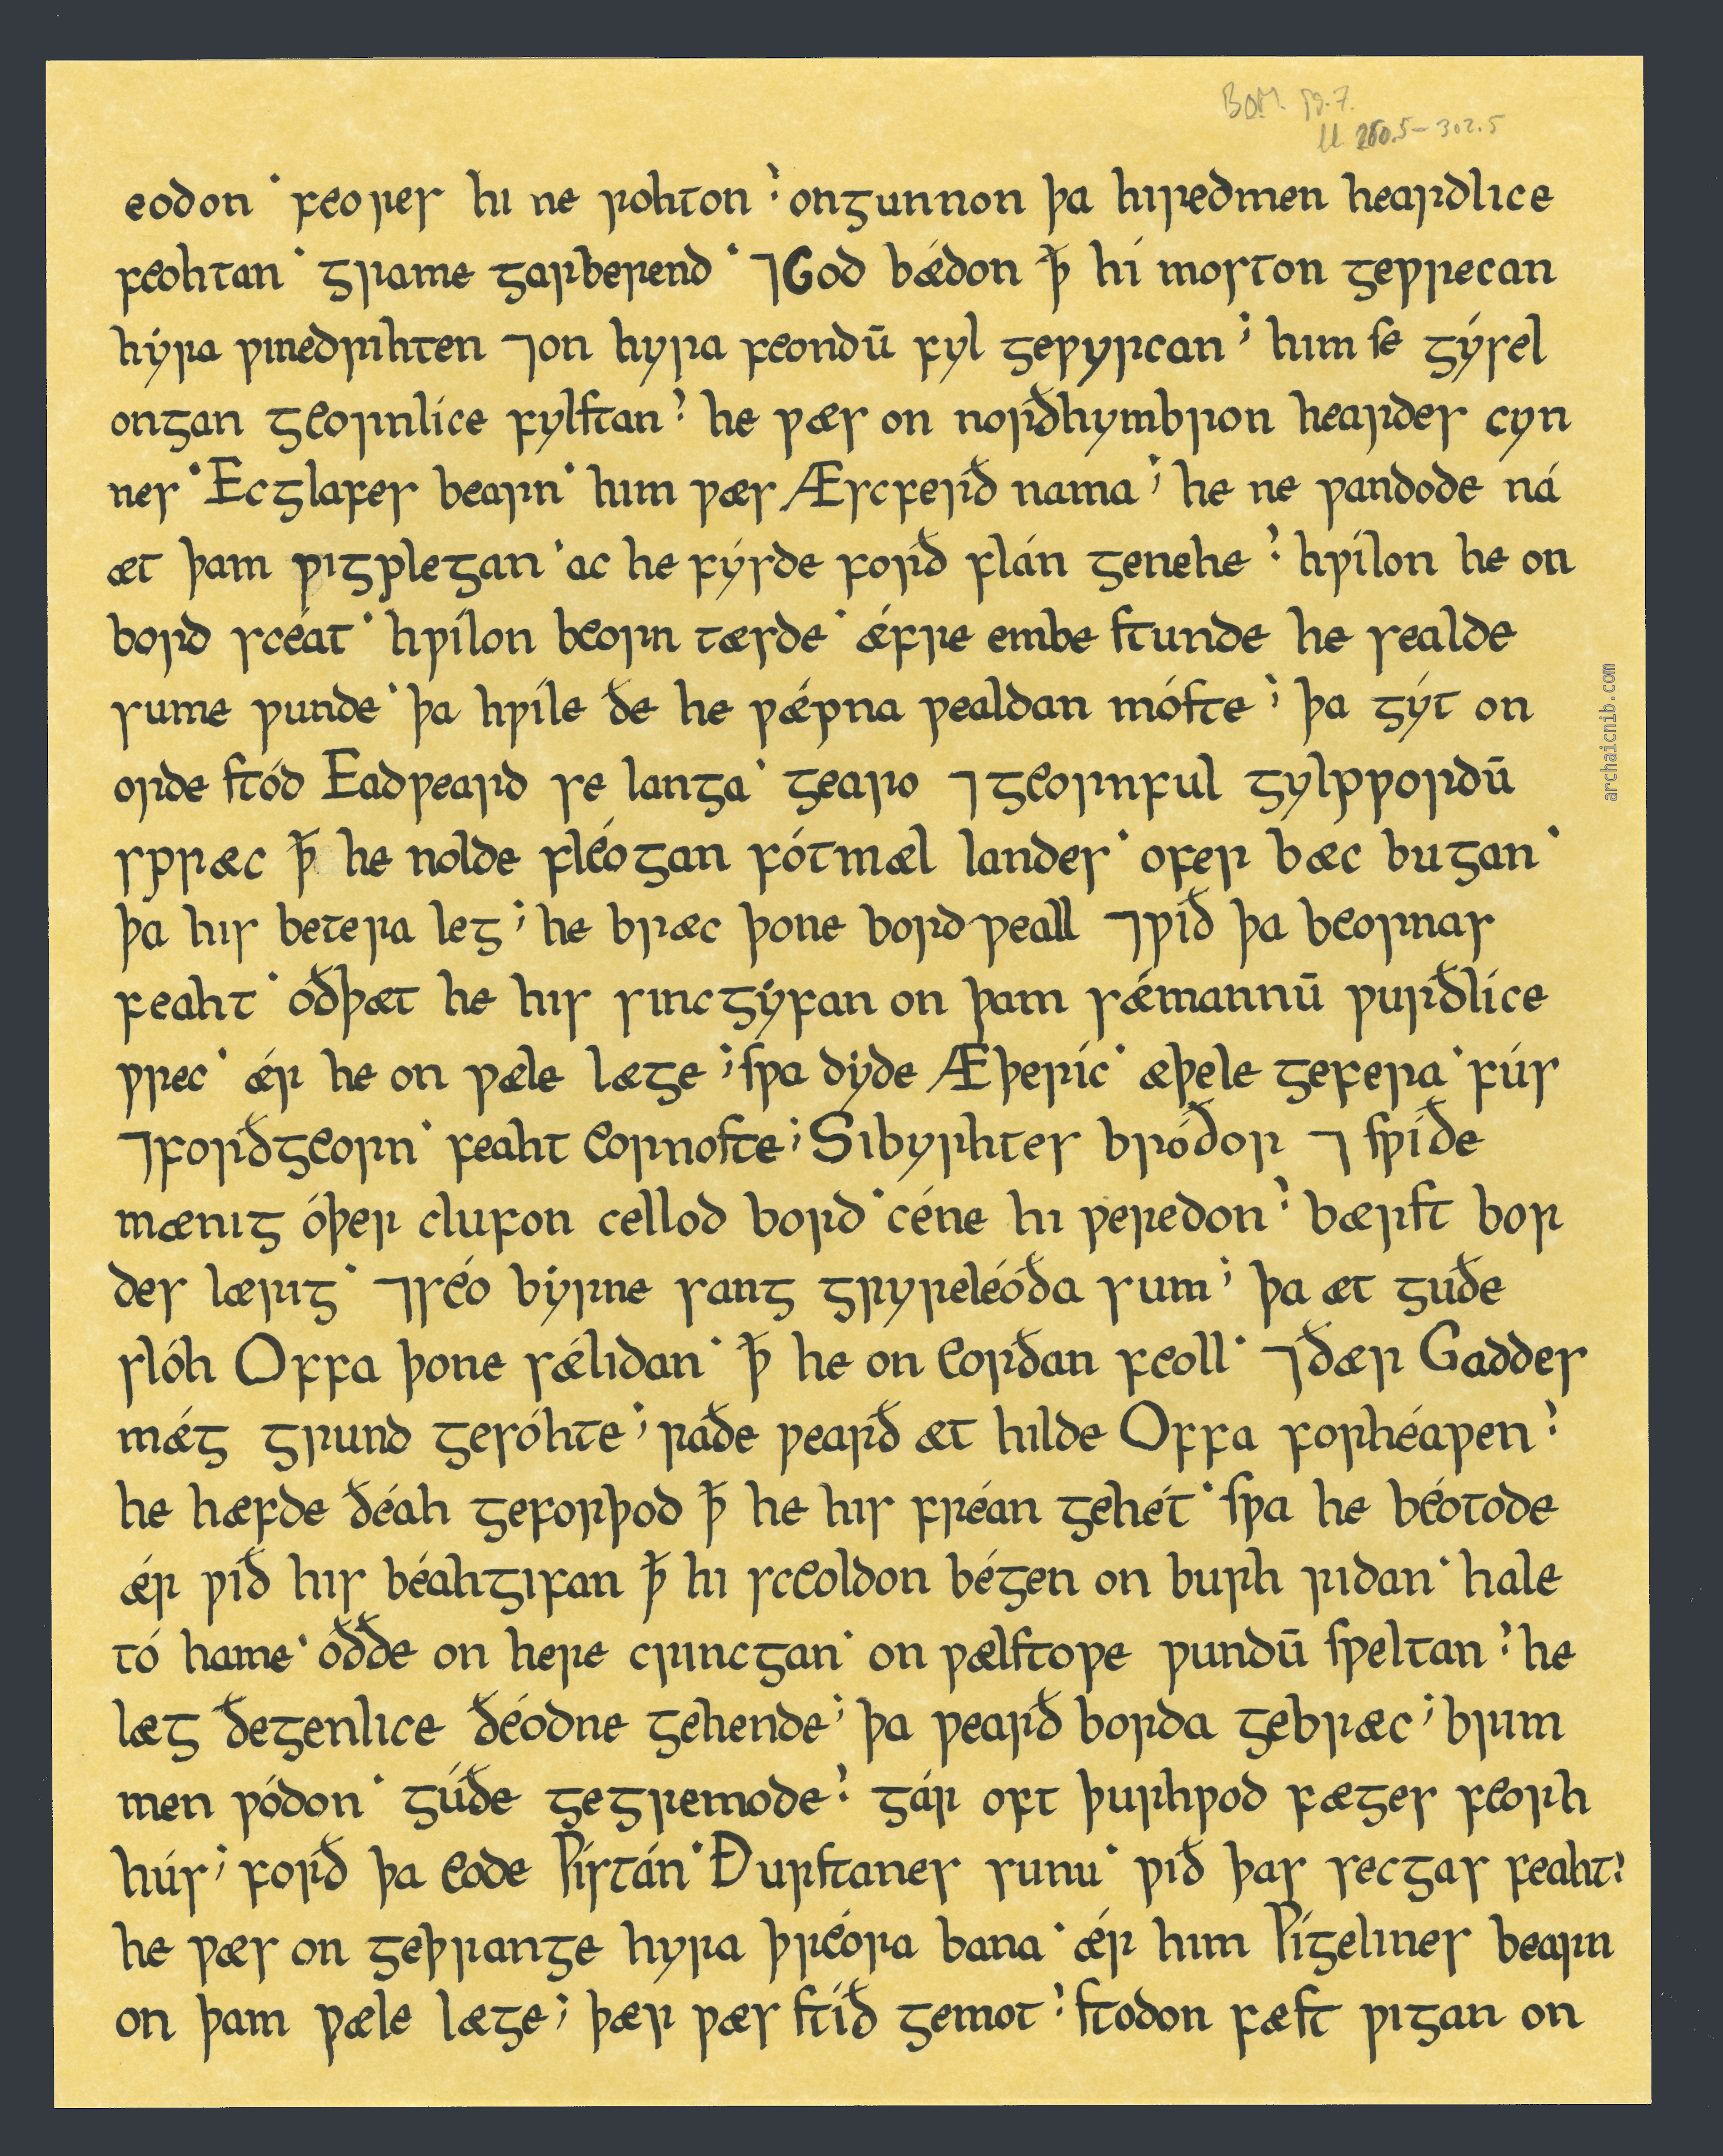 BOM. pg. 7.
ll. 260.5-302.5
eodon · feores hi ne rohton ; ongunnon þa hiredmen heardlice
feohtan · grame garberend · ⁊God bǽdon ꝥ hí moston geƿrecan
hẏra ƿinedrihten ⁊on hyra feondū fyl geƿyrcan ; him se gýsel
ongan geornlíce fylstan ; he ƿæs on norðhymbron heardes cyn
nes · Ecglafes bearn · him ƿæs Æscferð nama ; he ne ƿandode ná
æt þam ƿigplegan · ac he fýsde forð flán genehe ; hƿílon he on
bord scéat · hƿílon beorn tæsde · ǽfre embe stunde he sealde
sume ƿunde · þa hƿíle ðe he ƿǽpna ƿealdan móste ; þa gýt on
orde stód Eadƿeard se langa · gearo ⁊geornful gylpƿordū
spræc ꝥ he nolde fléogan fótmæl landes · ofer bæc bugan ·
þa his betera leg ; he bræc þone bordƿeall ⁊ƿið þa beornas
feaht · óðþæt he his sincgẏfan on þam sǽmannū ƿurðlíce
ƿrec · ǽr he on ƿæle læge ; sƿa dẏde Æþeríc · æþele gefera · fús
⁊forðgeorn · feaht eornoste ; Sibyrhtes bróðor ⁊ sƿiðe
mænig óþer clufon cellod bord · céne hi ƿeredon ; bærst bor
des lærig · ⁊séo bẏrne sang gryreléóða sum ; þa æt guðe
slóh Offa þone sǽlidan · ꝥ he on eorðan feoll · ⁊ðær Gaddes
mǽg grund gesóhte ; raðe ƿearð æt hilde Offa forhéaƿen ;
he hæfde ðéah geforþod ꝥ he his fréan gehét · sƿa he béotode
ǽr ƿið his béahgifan ꝥ hi sceoldon bégen on burh ridan · hale
tó hame · óððe on here crincgan · on ƿælstoƿe ƿundū sƿeltan ; he
læg ðegenlice ðéodne gehende ; þa ƿearð borda gebræc ; brim
men ƿódon · gúðe gegremode ; gár oft þurhƿod fæges feorh
hús ; forð þa eode Ƿístán · Ðurstanes sunu · ƿið þas secgas feaht ;
he ƿæs on geþrange hyra þréora bana · ǽr him Ƿígelines bearn
on þam ƿæle læge ; þær ƿæs stíð gemot ; stodon fæst ƿigan on
archaicnib.com